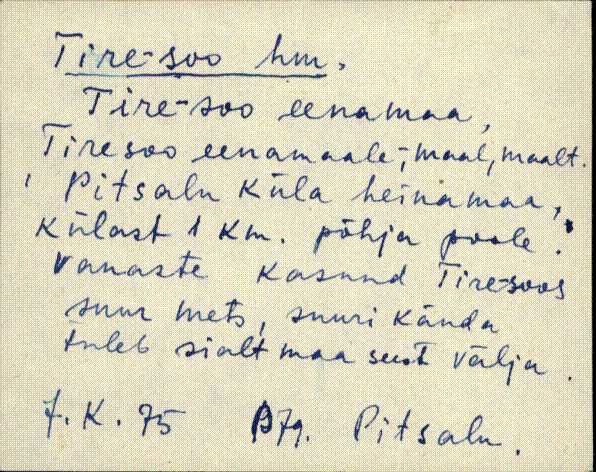 Tire-soo hm.
Tire-soo eenamaa,
Tiresoo eenamaale, -maal, maalt.
Pitsalu küla heinamaa,
külast 1 km. põhja poole.
Vanaste kasund Tire-soos
suur mets, suuri kända
tuleb sialt maa seest välja.
7. K. 75 Pitsalu.